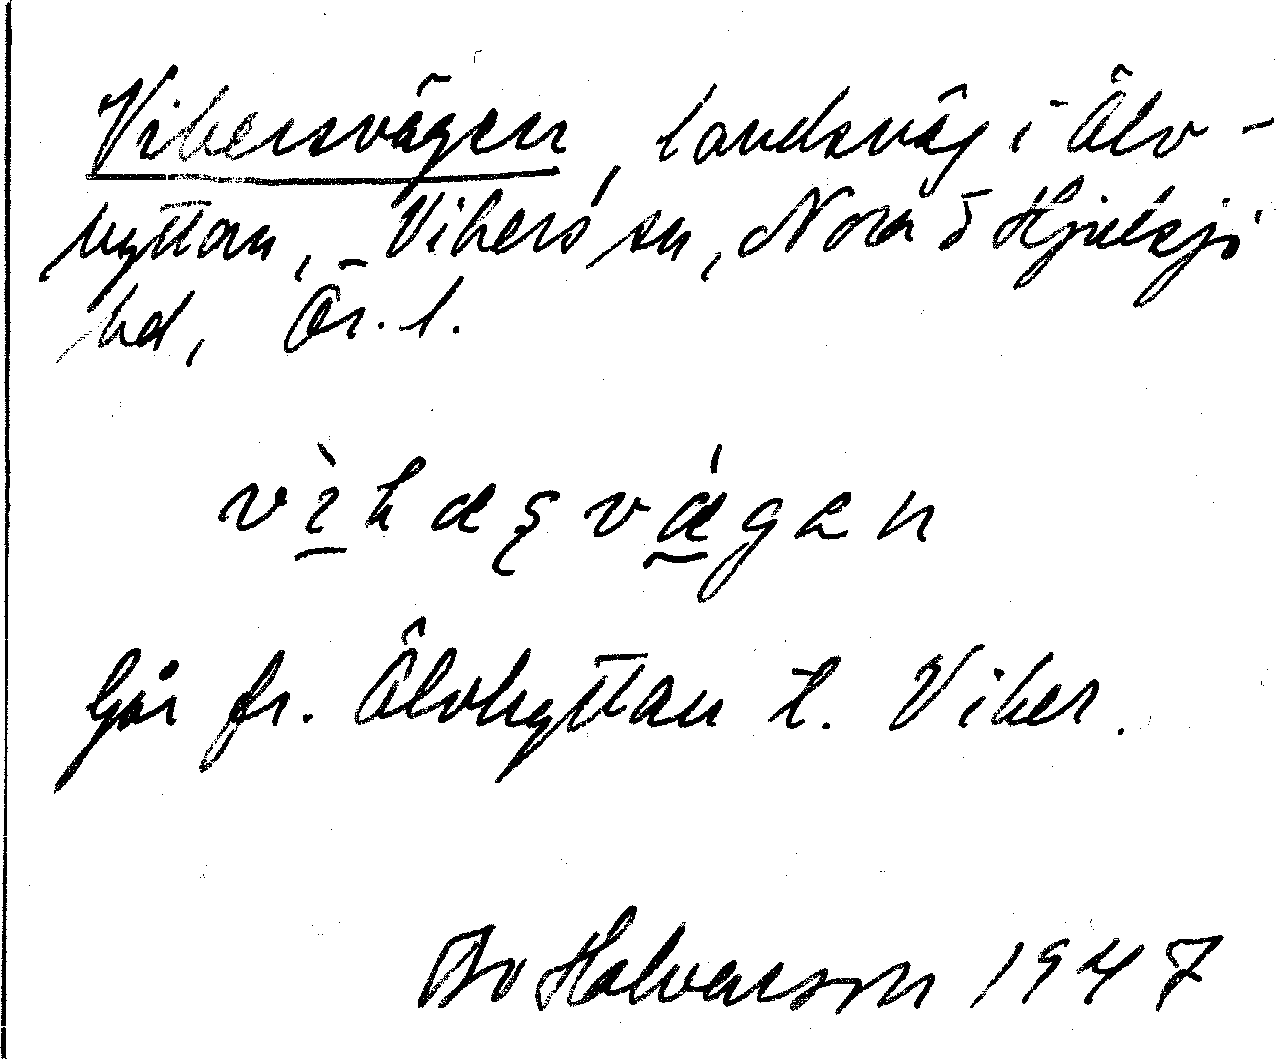 Vibersvägen, landsväg i Älv-
hyttan, Vibers sn, Nora o Hjulsjö
hd, Ör. l.
vìkæşvǽgen
Går fr. Älvhyttan t. Viker.
Bo Halvarson 1947